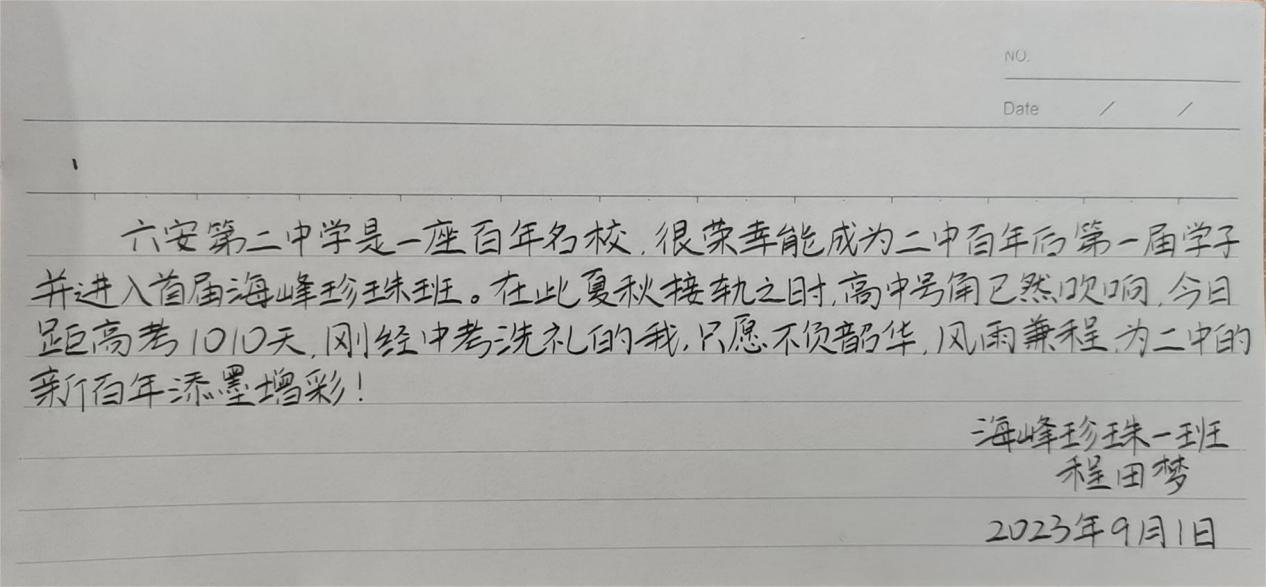 NO.
Date / /
六安第二中学是一座百年名校,很荣幸能成为二中百年后第一届学子
并进入首届海峰珍珠班。在此夏秋接轨之时,高中号角已然吹响,今日
距高考1010天,刚经中考洗礼的我,只愿不负韶华,风雨兼程,为二中的
新百年添墨增彩!
海峰珍珠一班
程田梦
2023年9月1日